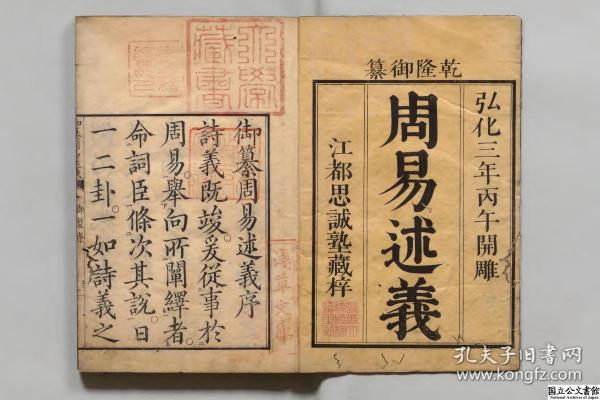 乾隆御纂
弘化三年丙午開雕
周易述義
江都思誠塾藏梓
御纂周易述義序
詩義既竣爰從事於
周易舉向所闡繹者
命詞臣條次其説日
一二卦一如詩義之
淺草文庫
孔夫子旧书网
www.kongfz.com
国立公文書館
National Archives of Japan